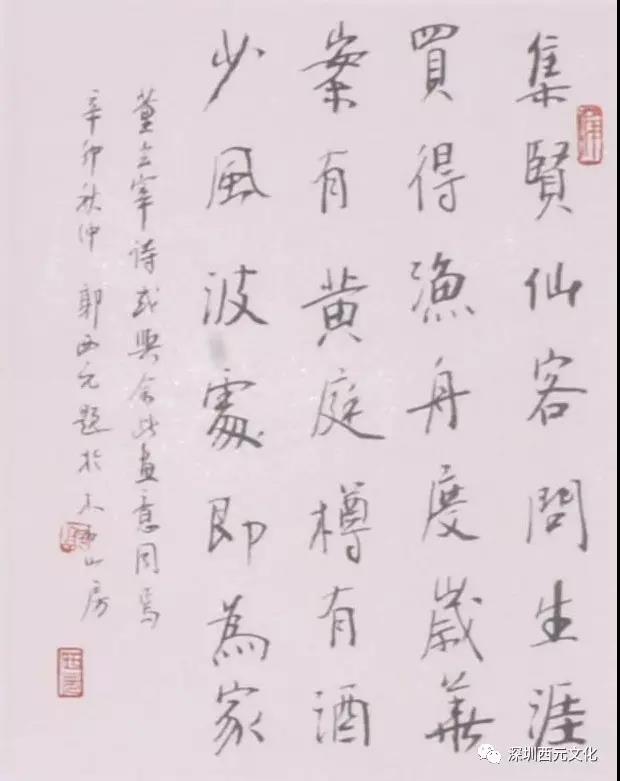 集賢仙客問生涯
買得漁舟度歲華
案有黄庭樽有酒
少風波處即為家
董玄宰诗或與余此畫意同焉
辛卯秋仲 郭西元題於木山房
深圳西元文化